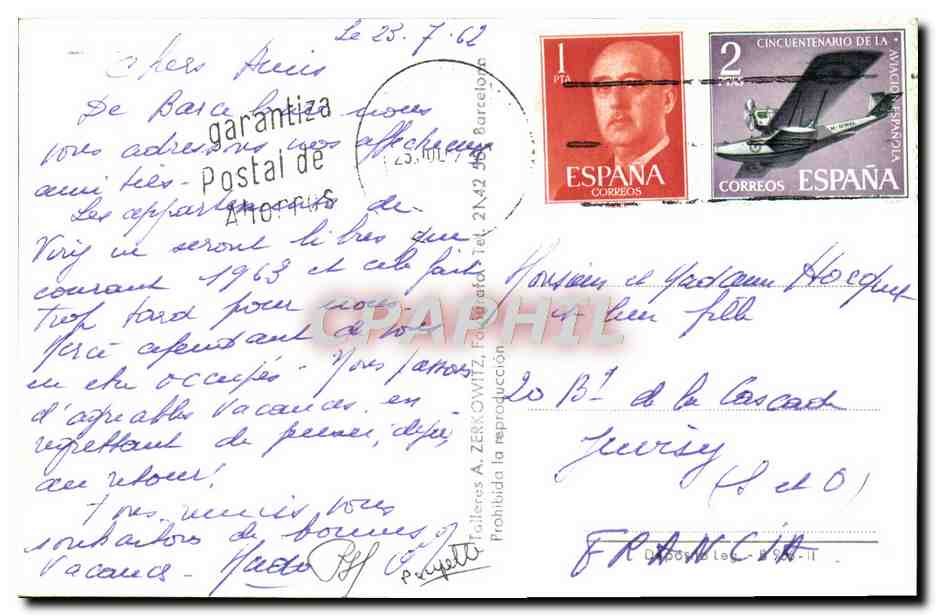 Le 23.7.62
Chers Amis
De Barcelone nous
vous adressons nos affectueuses
amitiés -
Les appartements de
Viry ne seront libres que
courant 1963 et cela fait
trop tard pour nous.
Merci cependant de vous
en etre occupés. Nous passons
d'agréables vacances en
regrettant de penser, déjà,
au retour!
Tous unis vous
souhaitons de bonnes
vacances - Mado
garantiza
Postal de
Ahorros
1
PTA
ESPAÑA
CORREOS
CINCUENTENARIO DE LA
AVIACION ESPAÑOLA
2
PTAS
CORREOS ESPAÑA
Talleres A. ZERKOWITZ, Fontarata - Tel. 2114258 Barcelona
Prohibida la reproducción
Monsieur et Madame Hocquet
et leur fille
20 Bd de la Cascade
Juvisy
(S et O)
FRANCIA
CPAPHIL